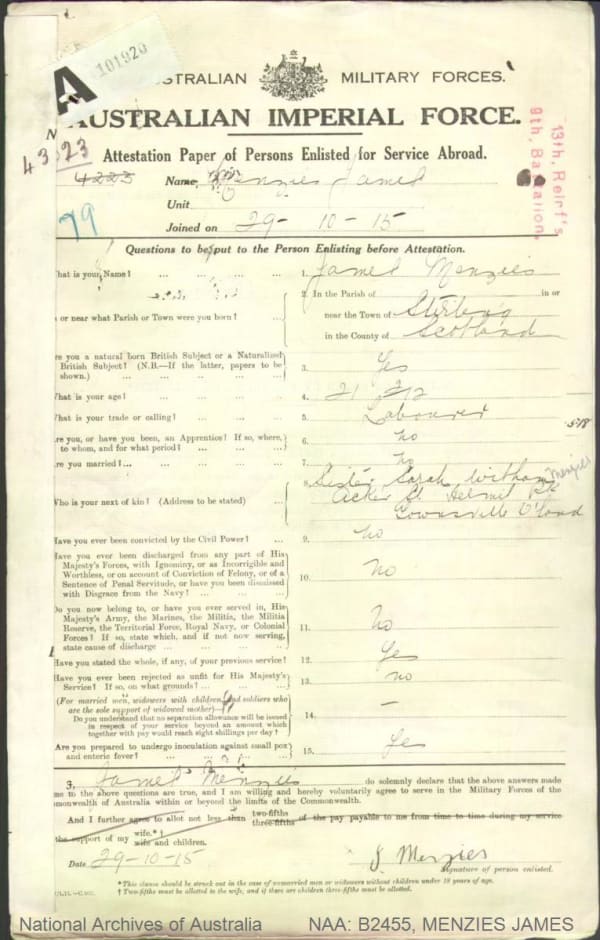 A 101920
AUSTRALIAN MILITARY FORCES.
AUSTRALIAN IMPERIAL FORCE.
4323
Attestation Paper of Persons Enlisted for Service Abroad.
4223
Name Menzies James
Unit
79
Joined on 29-10-15
13th, Reinf's
9th, Battalion.
Questions to be put to the Person Enlisting before Attestation.
What is your Name? ... ... ... ... 1. James Menzies
In or near what Parish or Town were you born? ... 2. In the Parish of in or
near the Town of Stirling
in the County of Scotland
Are you a natural born British Subject or a Naturalized
British Subject? (N.B.—If the latter, papers to be
shown.) ... ... ... ... 3. Yes
What is your age? ... ... ... ... 4. 21
What is your trade or calling? ... ... ... 5. Labourer
Are you, or have you been, an Apprentice? If so, where,
to whom, and for what period? ... ... ... 6. no
Are you married? ... ... ... ... 7. no
Who is your next of kin? (Address to be stated) ... 8. Sister Sarah Menzies
Acker St
Townsville Q'land
Have you ever been convicted by the Civil Power? ... 9. no
Have you ever been discharged from any part of His
Majesty's Forces, with Ignominy, or as Incorrigible and
Worthless, or on account of Conviction of Felony, or of a
Sentence of Penal Servitude, or have you been dismissed
with Disgrace from the Navy? ... ... ... 10. No
Do you now belong to, or have you ever served in, His
Majesty's Army, the Marines, the Militia, the Militia
Reserve, the Territorial Force, Royal Navy, or Colonial
Forces? If so, state which, and if not now serving,
state cause of discharge ... ... ... 11. No
Have you stated the whole, if any, of your previous service? 12. Yes
Have you ever been rejected as unfit for His Majesty's
Service? If so, on what grounds? ... ... 13. no
(For married men, widowers with children, and soldiers who
are the sole support of widowed mother)—
Do you understand that no separation allowance will be issued
in respect of your service beyond an amount which
together with pay would reach eight shillings per day? 14. —
Are you prepared to undergo inoculation against small pox
and enteric fever? ... ... ... ... 15. Yes
I, James Menzies do solemnly declare that the above answers made
me to the above questions are true, and I am willing and hereby voluntarily agree to serve in the Military Forces of the
Commonwealth of Australia within or beyond the limits of the Commonwealth.
And I further agree to allot not less than two-fifths three-fifths of the pay payable to me from time to time during my service
the support of my wife.*† wife and children.
Date 29-10-15
J Menzies
Signature of person enlisted.
*This clause should be struck out in the case of unmarried men or widowers without children under 18 years of age.
†Two-fifths must be allotted to the wife, and if there are children three-fifths must be allotted.
National Archives of Australia NAA: B2455, MENZIES JAMES